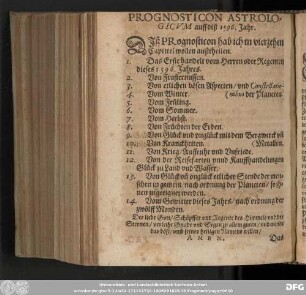 PROGNOSTICON ASTROLO-
GICVM auff diß 1596. Jahr.
DIß PRognosticon hab ich in vierzehen
Capitel wollen außtheilen.
1. Das Erste handelt vom Herren oder Regenten
dieses 1596. Jahres.
2. Von Finsternissen.
3. Von etlichen bösen Aspecten, vnd Constellatio-
4. Vom Winter. (nibus der Planeten
5. Vom Früling.
6. Vom Sommer.
7. Vom Herbst.
8. Von Früchten der Erden.
9. Von Glück vnd vnglück mit dem Bergwerck vñ
10. Von Kranckheiten. (Metallen.
11. Von Krieg, Auffruhr vnd Vnfriede.
12. Von der Reisefarten vnnd Kauffhandelungen
Glück zu Land vnd Wasser.
13. Von Glück vnd vnglück etlicher Stende der men-
schen in gemein, nach ordnung der Planeten,
14. Vom Gewitter dieses Jahrs, nach ordnung der
zwölff Monden.
Der liebe Gott, Schöpffer vnd Regente des Himmels vnd der
Sternen, verleihe Gnade vnd Segen zu allem guten, vnd wende
das böse, vmb seines heiligen Namens willen,
AMEN. Das